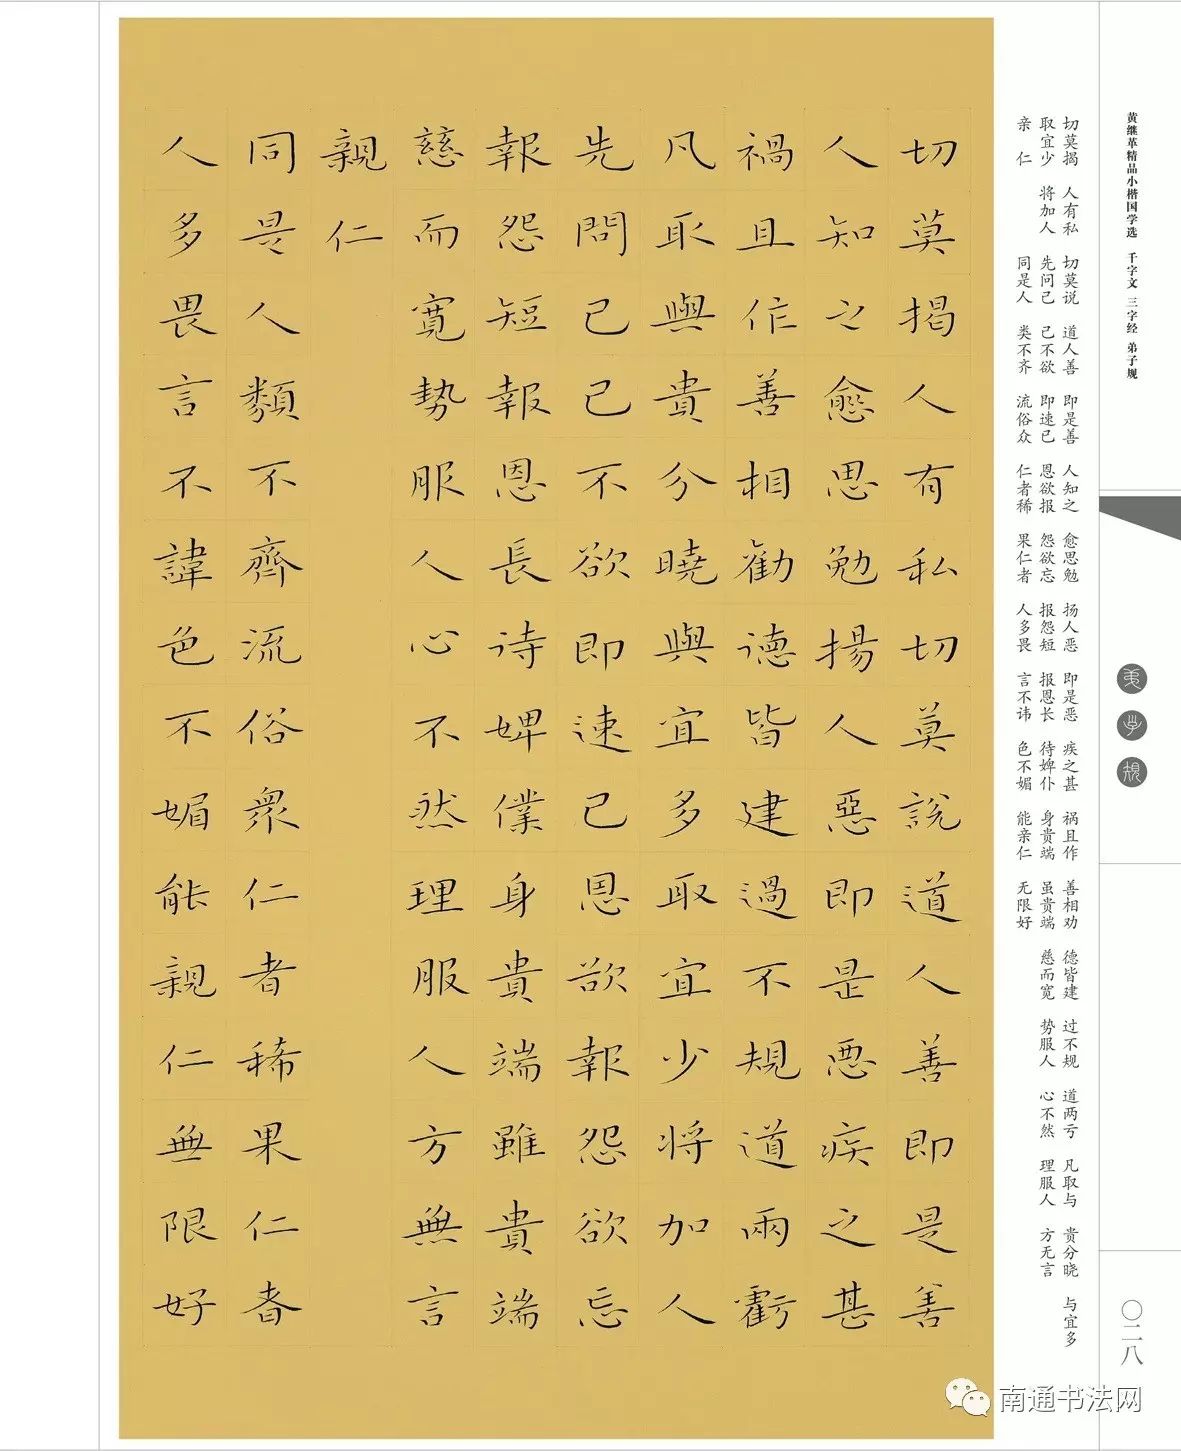 黄继革精品小楷国学选 千字文 三字经 弟子规
弟子规
〇二八
切莫揭 人有私 切莫说 道人善 即是善 人知之 愈思勉 扬人恶 即是恶 疾之甚 祸且作 善相劝 德皆建 过不规 道两亏 凡取与 贵分晓 与宜多
取宜少 将加人 先问己 己不欲 即速已 恩欲报 怨欲忘 报怨短 报恩长 待婢仆 身贵端 虽贵端 慈而宽 势服人 心不然 理服人 方无言
亲仁 同是人 类不齐 流俗众 仁者稀 果仁者 人多畏 言不讳 色不媚 能亲仁 无限好
切莫揭人有私切莫說道人善即是善
人知之愈思勉揚人惡即是悪疾之甚
禍且作善相勸德皆建過不規道兩虧
凡取與貴分曉與宜多取宜少將加人
先問己己不欲即速已恩欲報怨欲忘
報怨短報恩長待婢僕身貴端雖貴端
慈而寬勢服人心不然理服人方無言
親仁
同是人類不齊流俗眾仁者稀果仁者
人多畏言不諱色不媚能親仁無限好
南通书法网